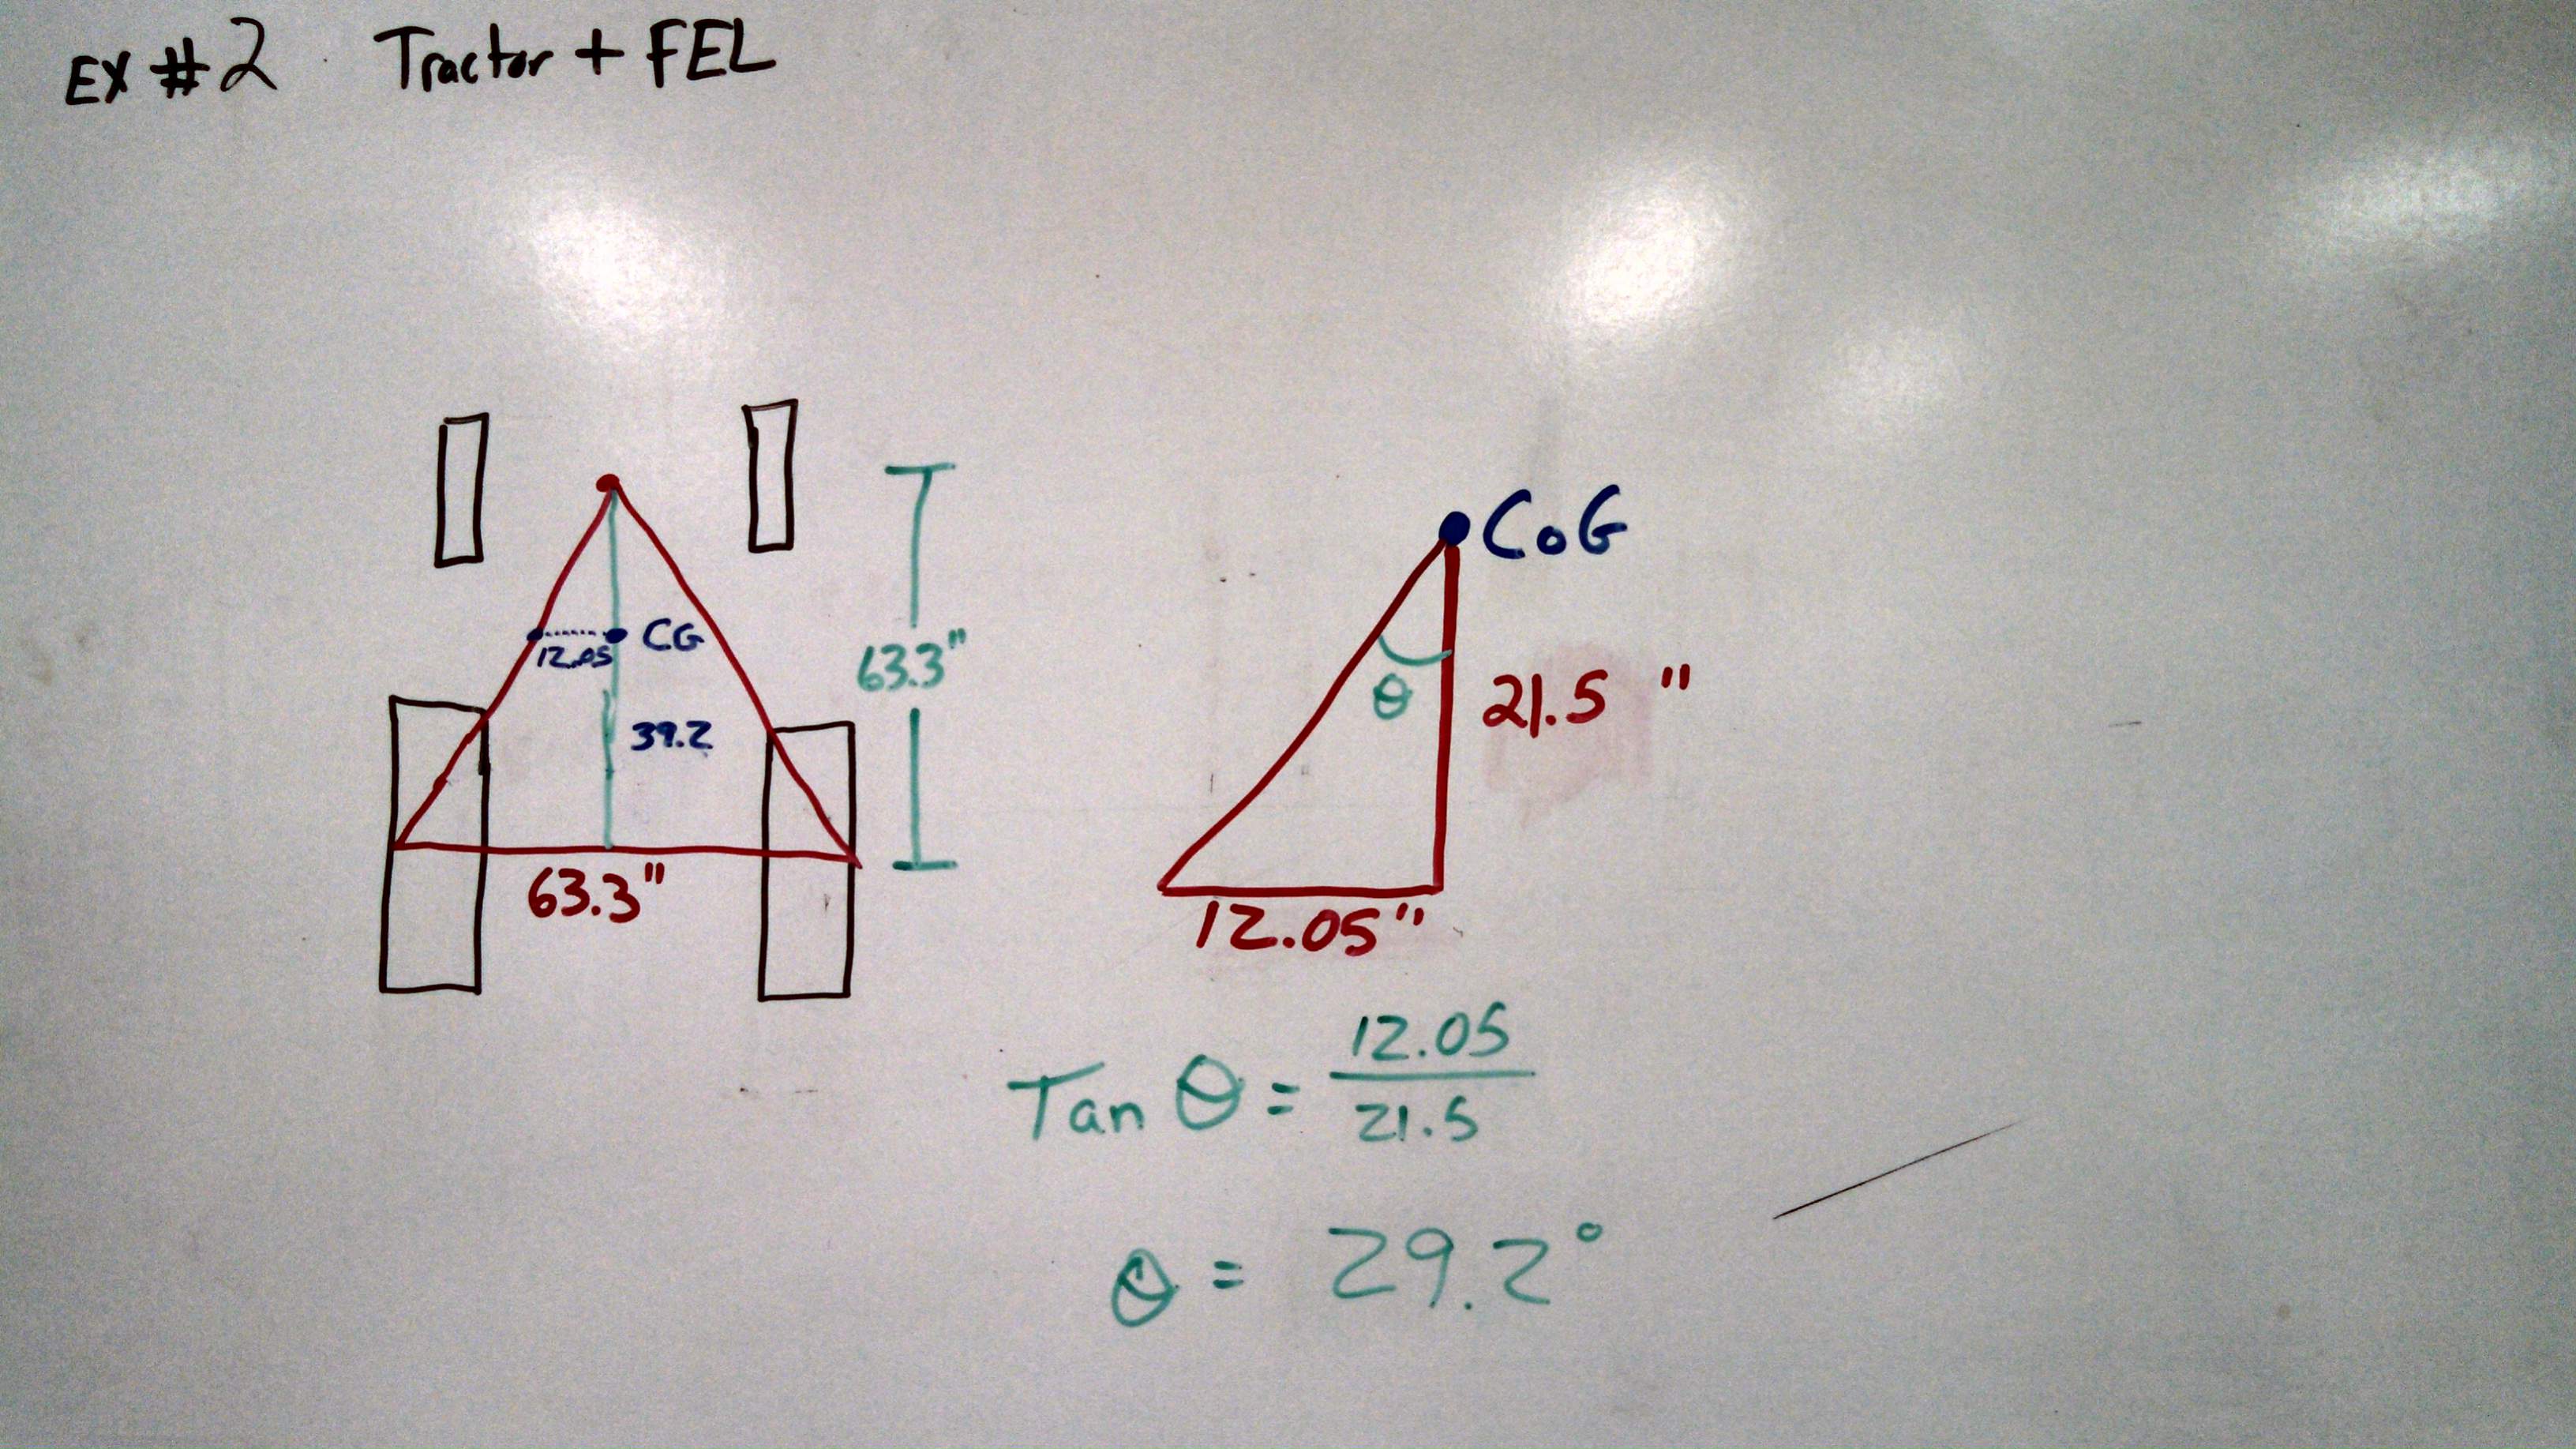 EX #2 Tractor + FEL
CG
12.05
39.2
63.3"
63.3"
CoG
θ
21.5 "
12.05"
Tan θ = 12.05
21.5
θ = 29.2°